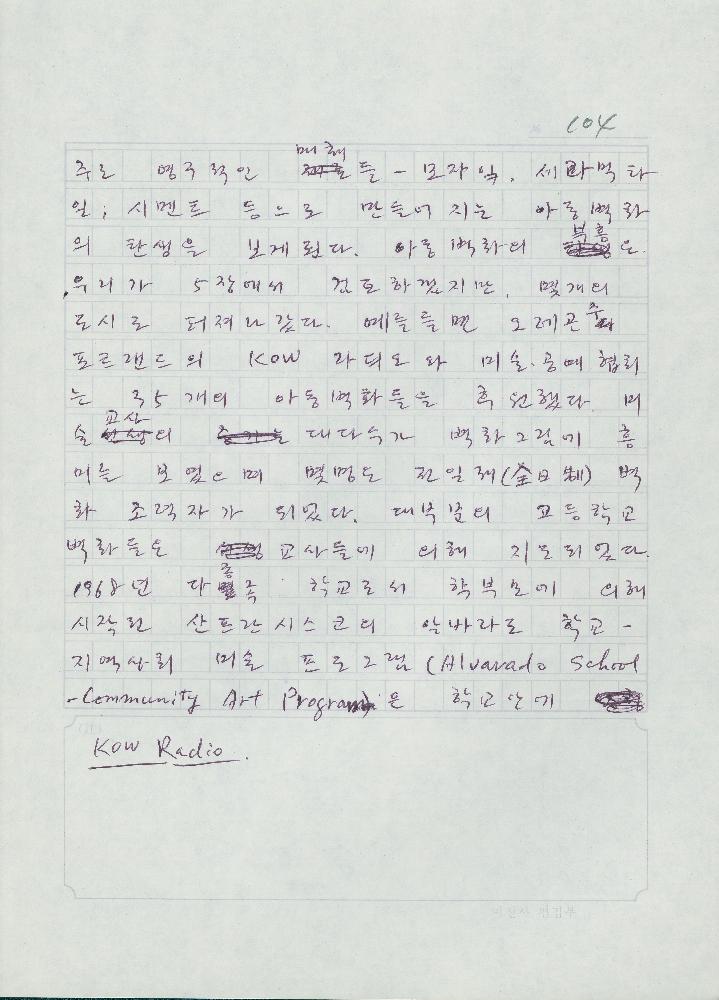 104
주로 영구적인 매체들 - 모자익, 세라믹 타
일, 시멘트 등으로 만들어지는 아동벽화
의 탄생을 보게된다. 아동벽화의 부흥은
우리가 5장에서 검토하겠지만, 몇개의
도시로 퍼져나갔다. 예를들면 오레곤주
포트랜드의 KOW 라디오와 미술·공예협회
는 35개의 아동벽화들을 후원했다. 미
술 교사의 대다수가 벽화그림에 흥
미를 보였으며 몇명도 전일제(全日制) 벽
화 조력자가 되었다. 대부분의 고등학교
벽화들도 교사들에 의해 지도되었다.
1968년 다종족 학교로서 학부모에 의해
시작된 산프란시스코의 알바라도 학교 -
지역사회 미술 프로그램 (Alvarado School
-Community Art Program)은 학교안에
KOW Radio.